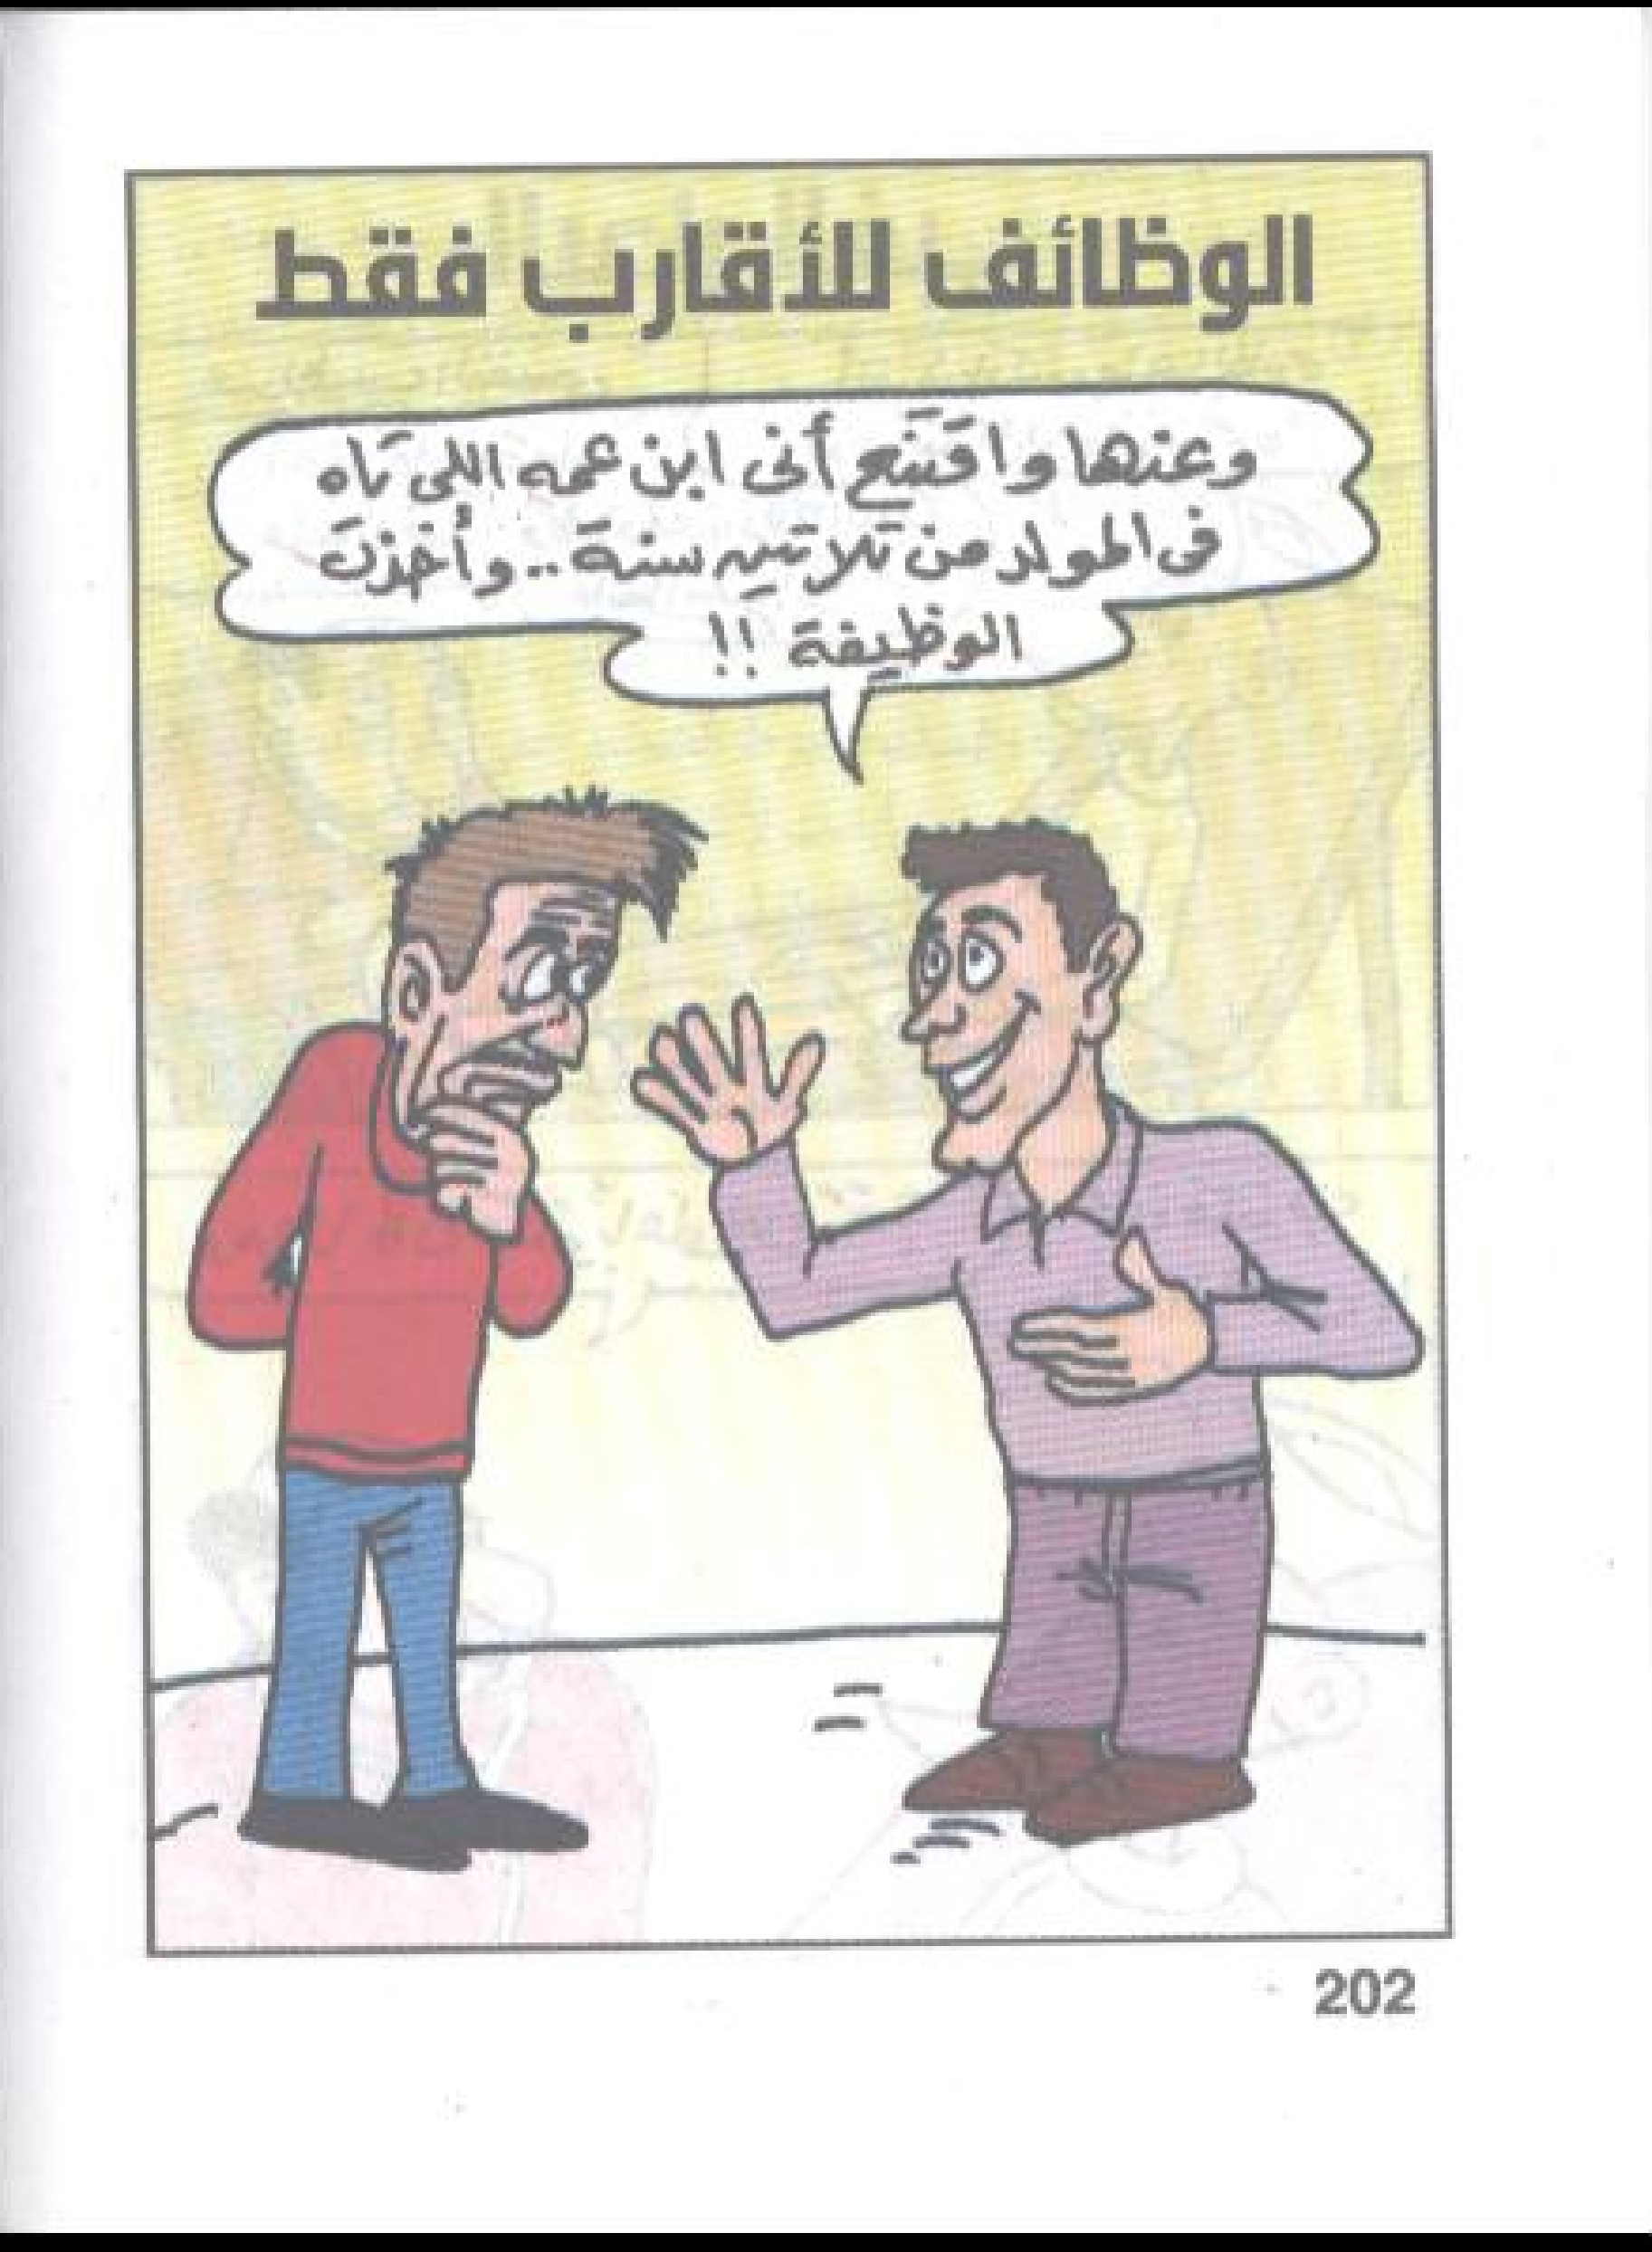 الوظائف للأقارب فقط
وعنها واقتنع أنى ابن عمه اللى تاه
فى المولد من تلاتين سنة .. وأخذت
الوظيفة !!
202